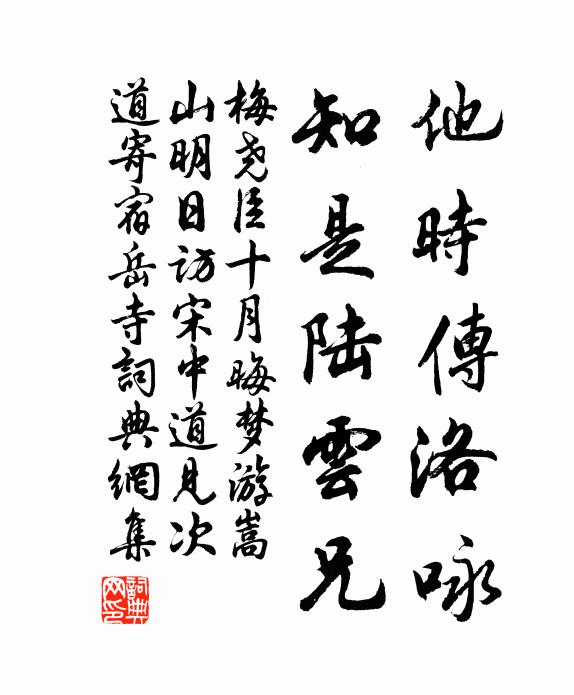 他時傳洛咏
知是陆雲兄
梅尧臣十月晦梦游嵩
山明日访宋中道見次
道寄宿岳寺詞典網集
詞典
网印